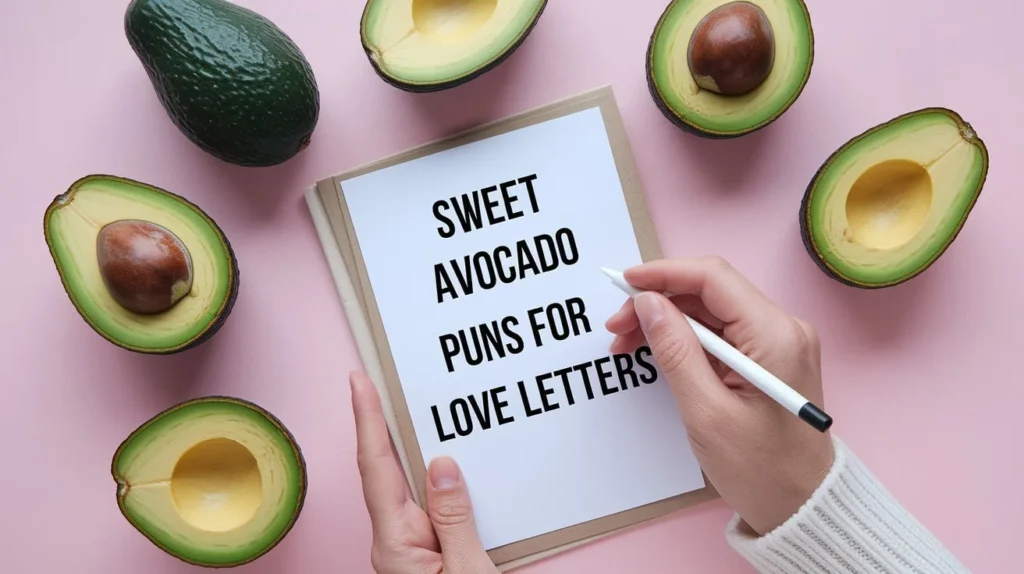 SWEET
AVOCADO
PUNS FOR
LOVE LETTERS